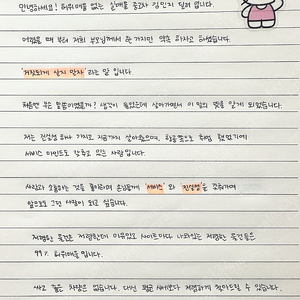 안녕하세요! 허위매물 없는 실매물 중고차 김민지 딜러 입니다.
어렸을 때 부터 저희 부모님께서 한 가지만 약속 하자고 하셨습니다.
'거짓되게 살지 말자' 라는 말 입니다.
처음엔 무슨 말씀이었을까? 생각이 들었는데 살아가면서 이 말의 뜻을 알게 되었습니다.
저는 진실성 하나 가지고 지금까지 살아왔으며, 항공쪽으로 취업 했었기에
서비스 마인드도 갖추고 있는 사람입니다.
사람과 소통하는 것을 좋아하며 손님들께 '서비스' 와 '진실성'을 갖춰가며
앞으로도 그런 사람이 되고 싶습니다.
저렴한 물건은 저렴한데 이유있고 사이트마다 나와있는 저렴한 물건들은
99% 허위매물입니다.
싸고 좋은 차량은 없습니다. 대신 평균 시세보다 저렴하게 찾아드릴 수 있습니다.